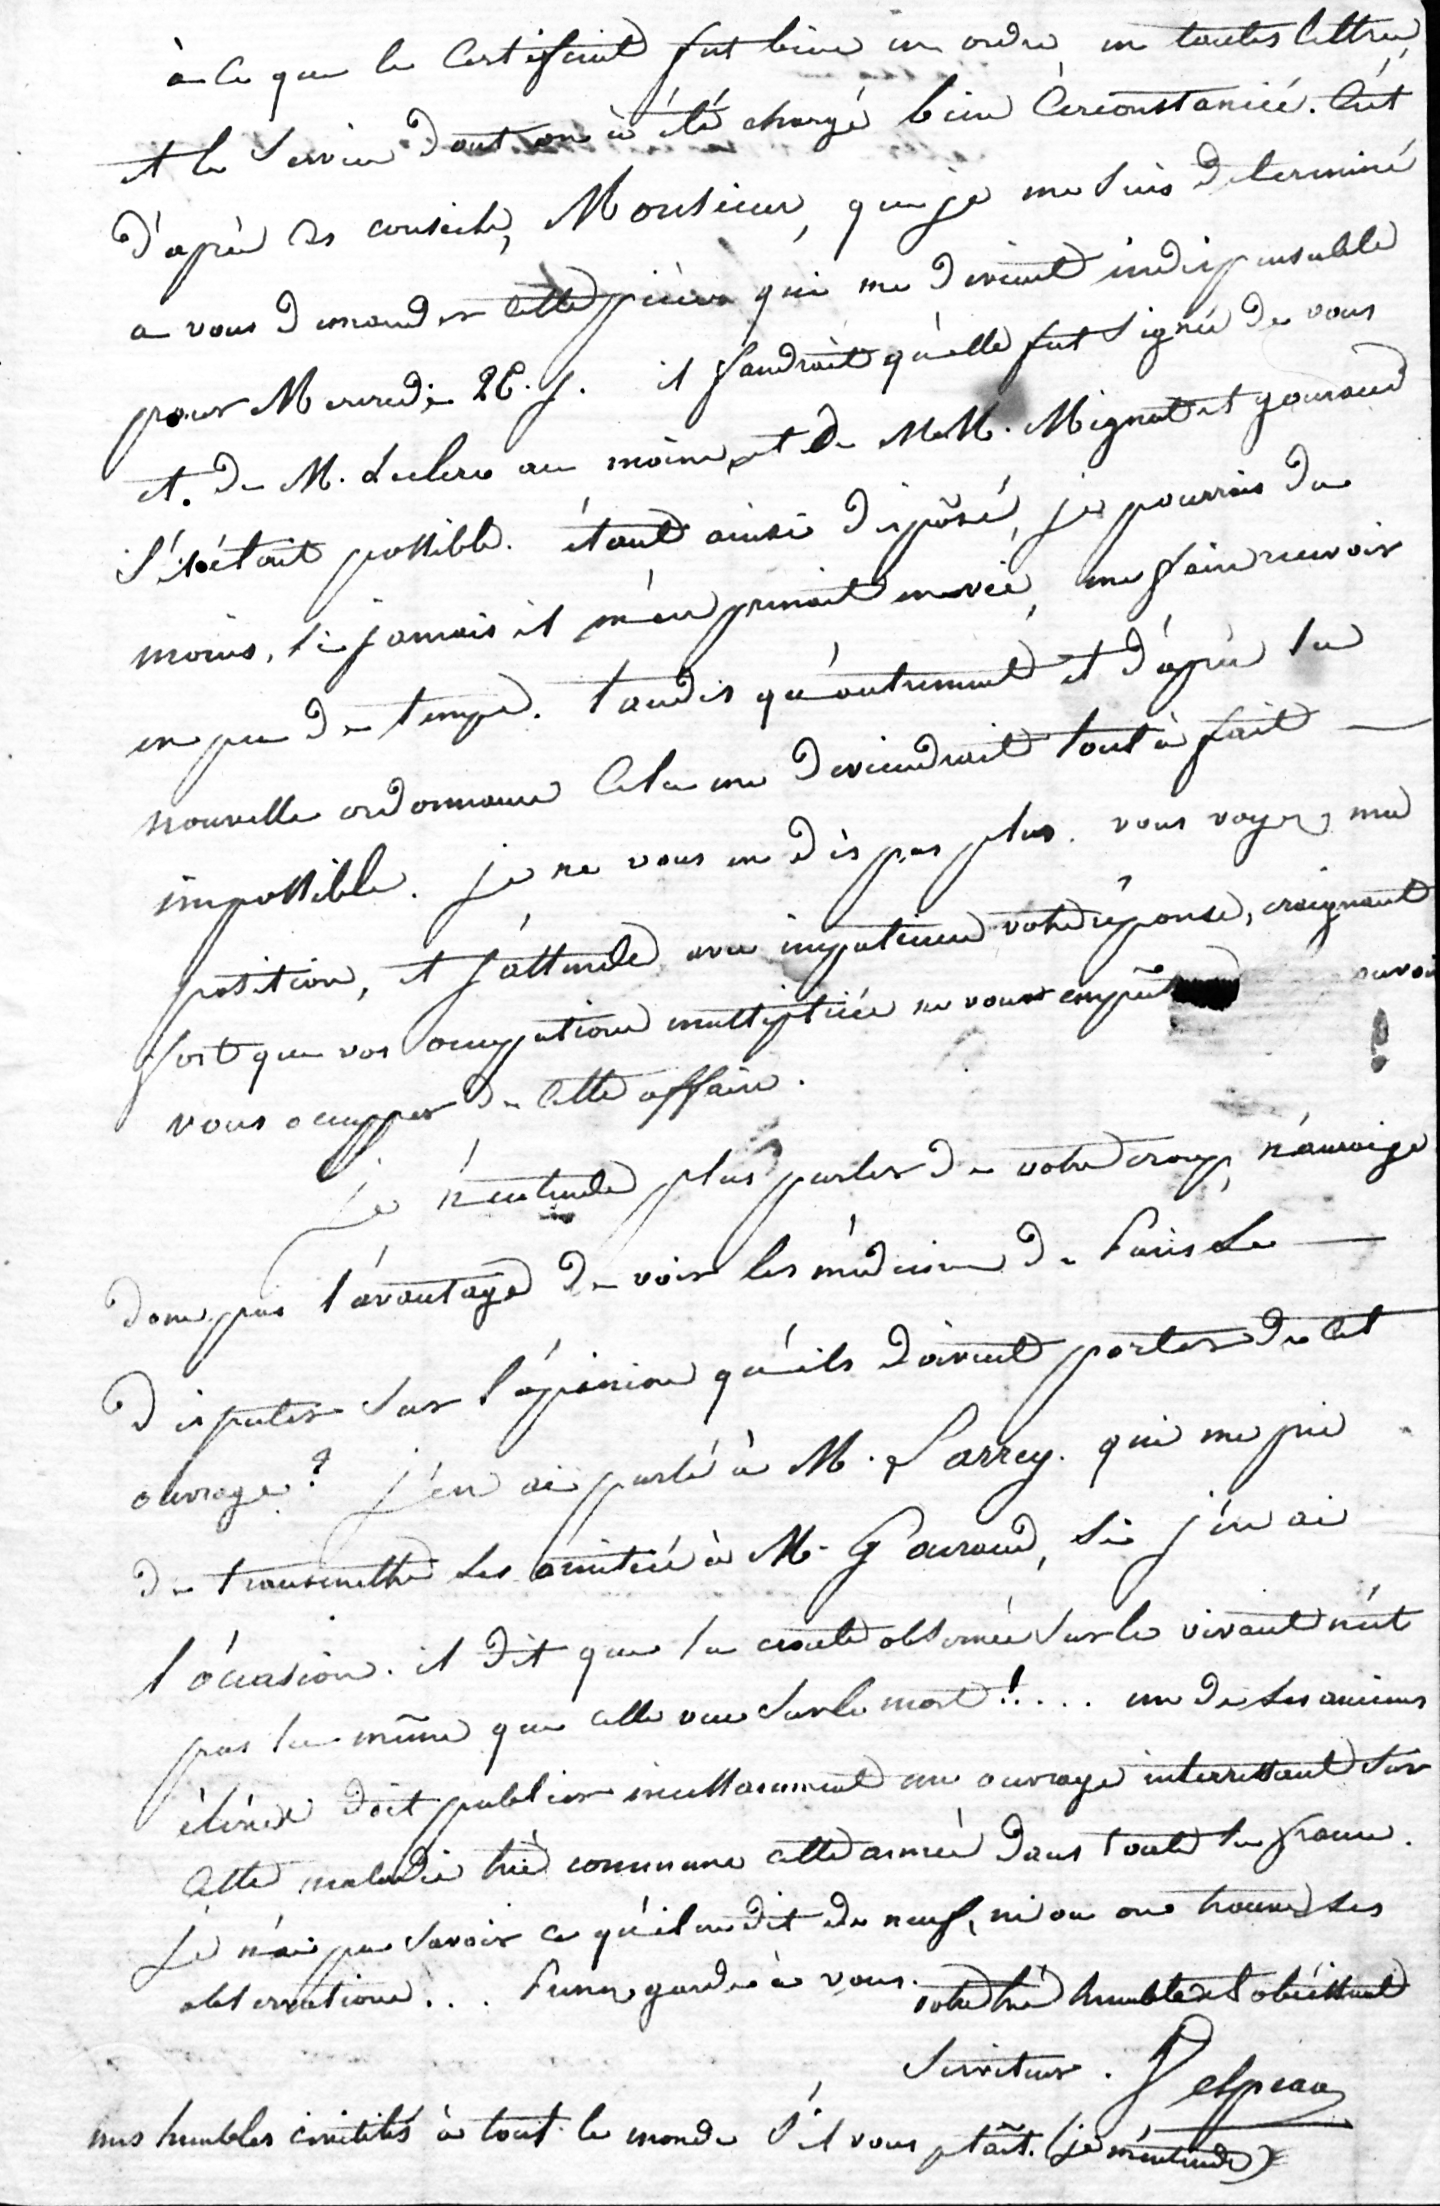 à ce que le certificat fut bien en ordre, en toutes lettres,
et le service dont on a été chargé bien circonstancié. C'est
d'après ces conseils, Monsieur, que je me suis determiné
a vous demander cette pièce qui me devient indispensable
pour Mercredi 26. j. il faudrait qu'elle fut signée de vous
et. de M. Leclerc au moins, et de MM. Mignot et gouraud
s'il étoit possible. étant ainsi disposé, je pourrois du
moins, si jamais il m'en prenait envie, me faire recevoir
en peu de temps. tandis qu'autrement et d'après la
nouvelle ordonnance cela me deviendrait tout à fait
impossible. je ne vous en dis pas plus. vous voyez ma
position, et j'attends avec impatience votre réponse, craignant
fort que vos occupations multipliées ne vous empêt
vous occupper de cette affaire.
Je n'entends plus parler de votre croup, n'auroige
donc pas l'avantage de voir les médecins de Paris se
disputer sur l'opinion qu'ils doivent porter de cet
ouvrage? j'en ai parlé à M. Larrey. qui me prie
de transmettre ses amitiés à M. Gouraud, si j'en ai
l'occasion. il dit que la croute observée sur le vivant n'est
pas la même que celle vue sur le mort!.... un de ses anciens
élèves doit publier incessamment un ouvrage interressant sur
cette maladie très commune cette année dans toute la france.
Je n'ai pu savoir ce qu'il en dit de neuf, ni ou on trouve ses
observations... Prenez garde à vous.
votre très humble et obéissant
serviteur. Espiau
mes humbles civilités à tout le monde s'il vous plait. (je m'entends)